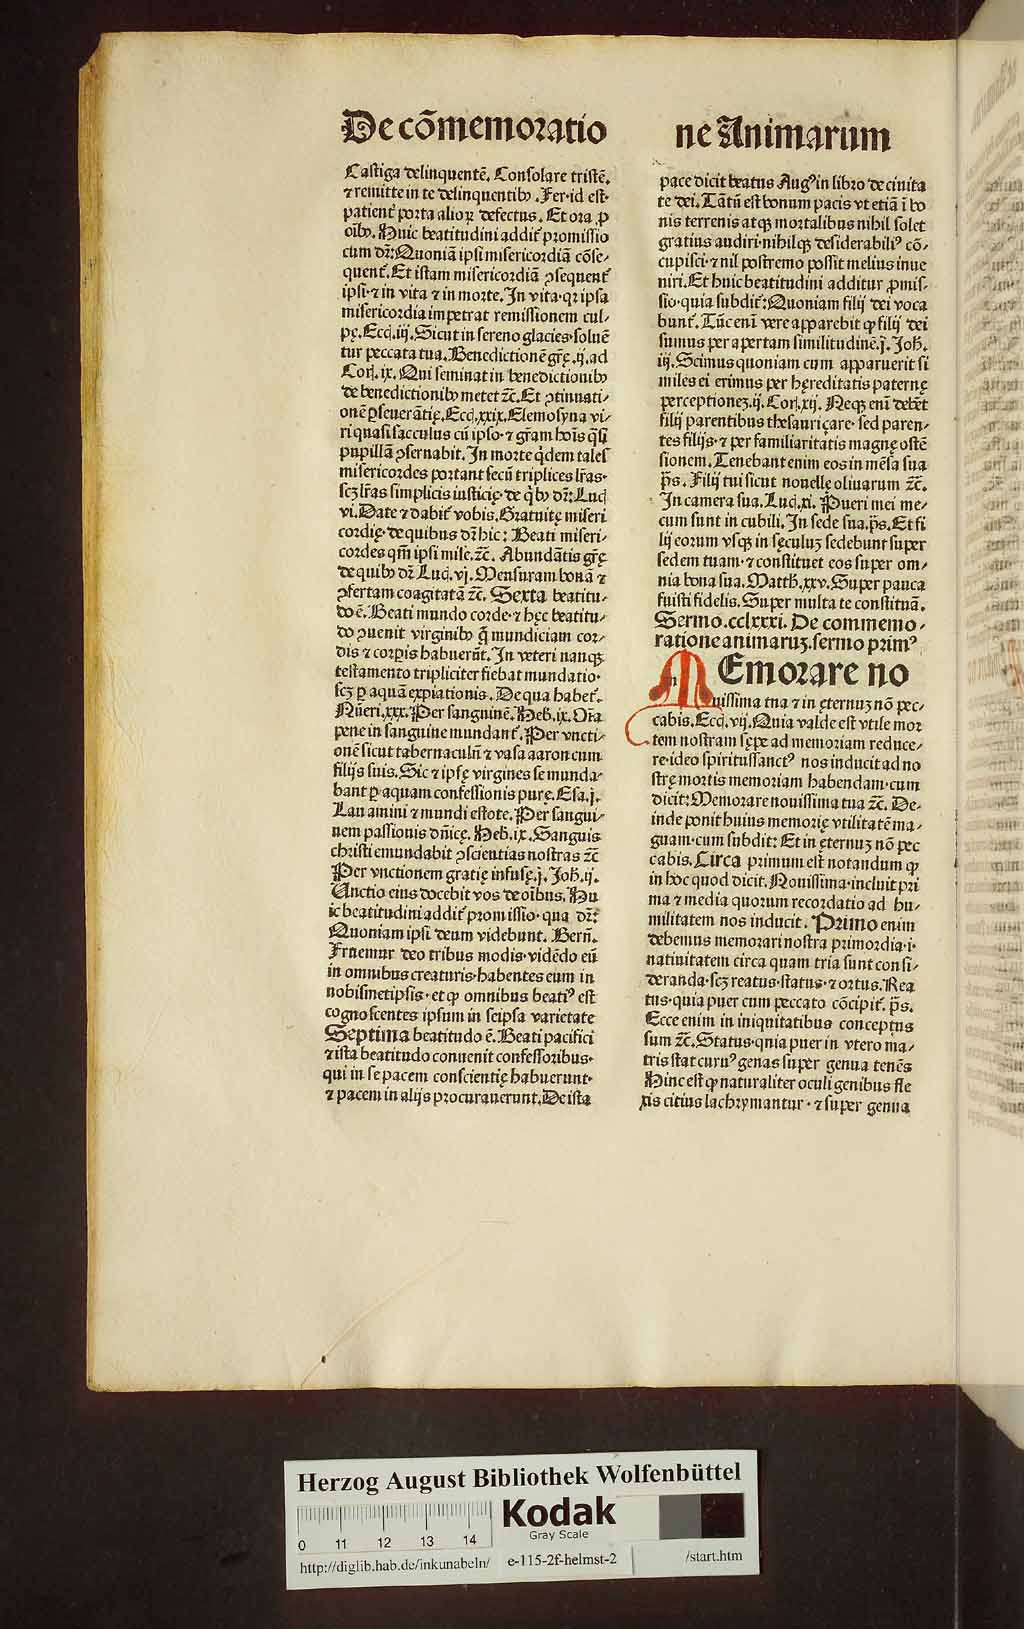 De cõmemoratio
Castiga delinquentẽ. Consolare tristẽ.
⁊ remitte in te delinquentibꝰ. Fer· id est·
patient᷑ porta alioꝝ defectus. Et ora ꝓ
oĩbꝰ. Huic beatitudini addit᷑ promissio
cum dr̃: Quoniã ipsi misericordiã cõse-
quent᷑. Et istam misericordiã ꝯsequent᷑
ipsi· ⁊ in vita ⁊ in morte. In vita· qꝛ ipsa
misericordia impetrat remissionem cul-
pę. Ecci. iij. Sicut in sereno glacies· soluẽ
tur peccata tua. Benedictionẽ grę. ij. ad
Corĩ. ix. Qui seminat in benedictionibꝰ
de benedictionibꝰ metet ⁊c̃. Et ꝯtinuati-
onẽ ꝑseuerãtię. Ecci. xxix. Elemosyna vi-
ri quasi sacculus cũ ipso· ⁊ gr̃am hoĩs q̃si
pupillã ꝯseruabit. In morte q̃dem tales
misericordes portant secũ triplices lr̃as·
scꝫ lr̃as simplicis iusticię· de q̃bꝰ dr̃: Luc̃
vi. Date ⁊ dabit᷑ vobis. Gratuitę miseri
cordię· de quibus dr̃ hic: Beati miseri-
cordes qm̃ ipsi mise. ⁊c̃. Abundãtis grę
de quibꝰ dr̃ Luc̃. vj. Mensuram bonã ⁊
ꝯfertam coagitatã ⁊c̃. Sexta beatitu-
do ẽ. Beati mundo corde· ⁊ hęc beatitu-
do ꝯuenit virginibꝰ q̃ mundiciam cor-
dis ⁊ corꝑis habuerũt. In veteri nanqꝫ
testamento tripliciter fiebat mundatio·
scꝫ ꝑ aquã expiationis. De qua habet᷑.
Nũeri. xxx. Per sanguinẽ. Heb̃. ix. Oĩa
pene in sanguine mundant᷑. Per vncti-
onẽ sicut tabernaculũ ⁊ vasa aaron cum
filijs suis. Sic ⁊ ipsę virgines se munda-
bant ꝑ aquam confessionis purę. Esa. j.
Lauamini ⁊ mundi estote. Per sangui-
nem passionis dñicę. Heb̃. ix. Sanguis
christi emundabit ꝯscientias nostras ⁊c̃
Per vnctionem gratię infusę. j. Joh̃. ij.
Unctio eius docebit vos de oĩbus. Hu
ic beatitudini addit᷑ promissio· qua dr̃:
Quoniam ipsi deum videbunt. Berñ.
Fruemur deo tribus modis· vidẽdo eũ
in omnibus creaturis· habentes eum in
nobismetipsis· et ꝙ omnibus beatiꝰ est
cognoscentes ipsum in seipsa varietate
Septima beatitudo ẽ. Beati pacifici
⁊ ista beatitudo conuenit confessoribus·
qui in se pacem conscientię habuerunt·
⁊ pacem in alijs procurauerunt. De ista
ne Animarum
pace dicit beatus Augꝰ in libro de ciuita
te dei. Tãtũ est bonum pacis vt etiã ĩ bo
nis terrenis atqꝫ mortalibus nihil solet
gratius audiri· nihilqꝫ desiderabiliꝰ cõ-
cupisci· ⁊ nil postremo possit melius inue
niri. Et huic beatitudini additur ꝓmis-
sio· quia subdit᷑: Quoniam filij dei voca
bunt᷑. Tũc enĩ vere apparebit ꝙ filij dei
sumus per apertam similitudinẽ. j. Joh̃.
iij. Scimus quoniam cum apparuerit si
miles ei erimus per hęreditatis paternę
perceptioneꝫ. ij. Corĩ. xij. Neqꝫ enĩ debẽt
filij parentibus thesauriçare· sed paren-
tes filijs· ⁊ per familiaritatis magnę ostẽ
sionem. Tenebant enim eos in mẽsa sua
p̃s. Filij tui sicut nouellę oliuarum ⁊c̃.
In camera sua. Luc̃. xi. Pueri mei me-
cum sunt in cubili. In sede sua. p̃s. Et fi
lij eorum vsqꝫ in sęculuꝫ sedebunt super
sedem tuam· ⁊ constituet eos super om-
nia bona sua. Matth̃. xxv. Super pauca
fuisti fidelis. Super multa te constituã.
Sermo. cclxxxi. De commemo-
ratione animaruꝫ. sermo primꝰ
MEmorare no
uissima tua ⁊ in ęternuꝫ nõ pec-
cabis. Ecci. vij. Quia valde est vtile mor
tem nostram sępe ad memoriam reduce-
re· ideo spiritussanctꝰ nos inducit ad no
strę mortis memoriam habendam· cum
dicit: Memorare nouissima tua ⁊c̃. De-
inde ponit huius memorię vtilitatẽ ma-
gnam· cum subdit: Et in ęternuꝫ nõ pec
cabis. Circa primum est notandum ꝙ
in hoc quod dicit. Nouissima· incluit pri
ma ⁊ media quorum recordatio ad hu-
militatem nos inducit. Primo enim
debemus memorari nostra primordia· i·
natiuitatem circa quam tria sunt consi-
deranda· scꝫ reatus· status· ⁊ ortus. Rea
tus· quia puer cum peccato cõcipit᷑. p̃s.
Ecce enim in iniquitatibus conceptus
sum ⁊c̃. Status· quia puer in vtero ma-
tris stat curuꝰ genas super genua tenẽs
Hinc est ꝙ naturaliter oculi genibus fle
xis citius lachrymantur· ⁊ super genua
Herzog August Bibliothek Wolfenbüttel
Kodak
Gray Scale
0 11 12 13 14
http://diglib.hab.de/inkunabeln/ e-115-2f-helmst-2 /start.htm